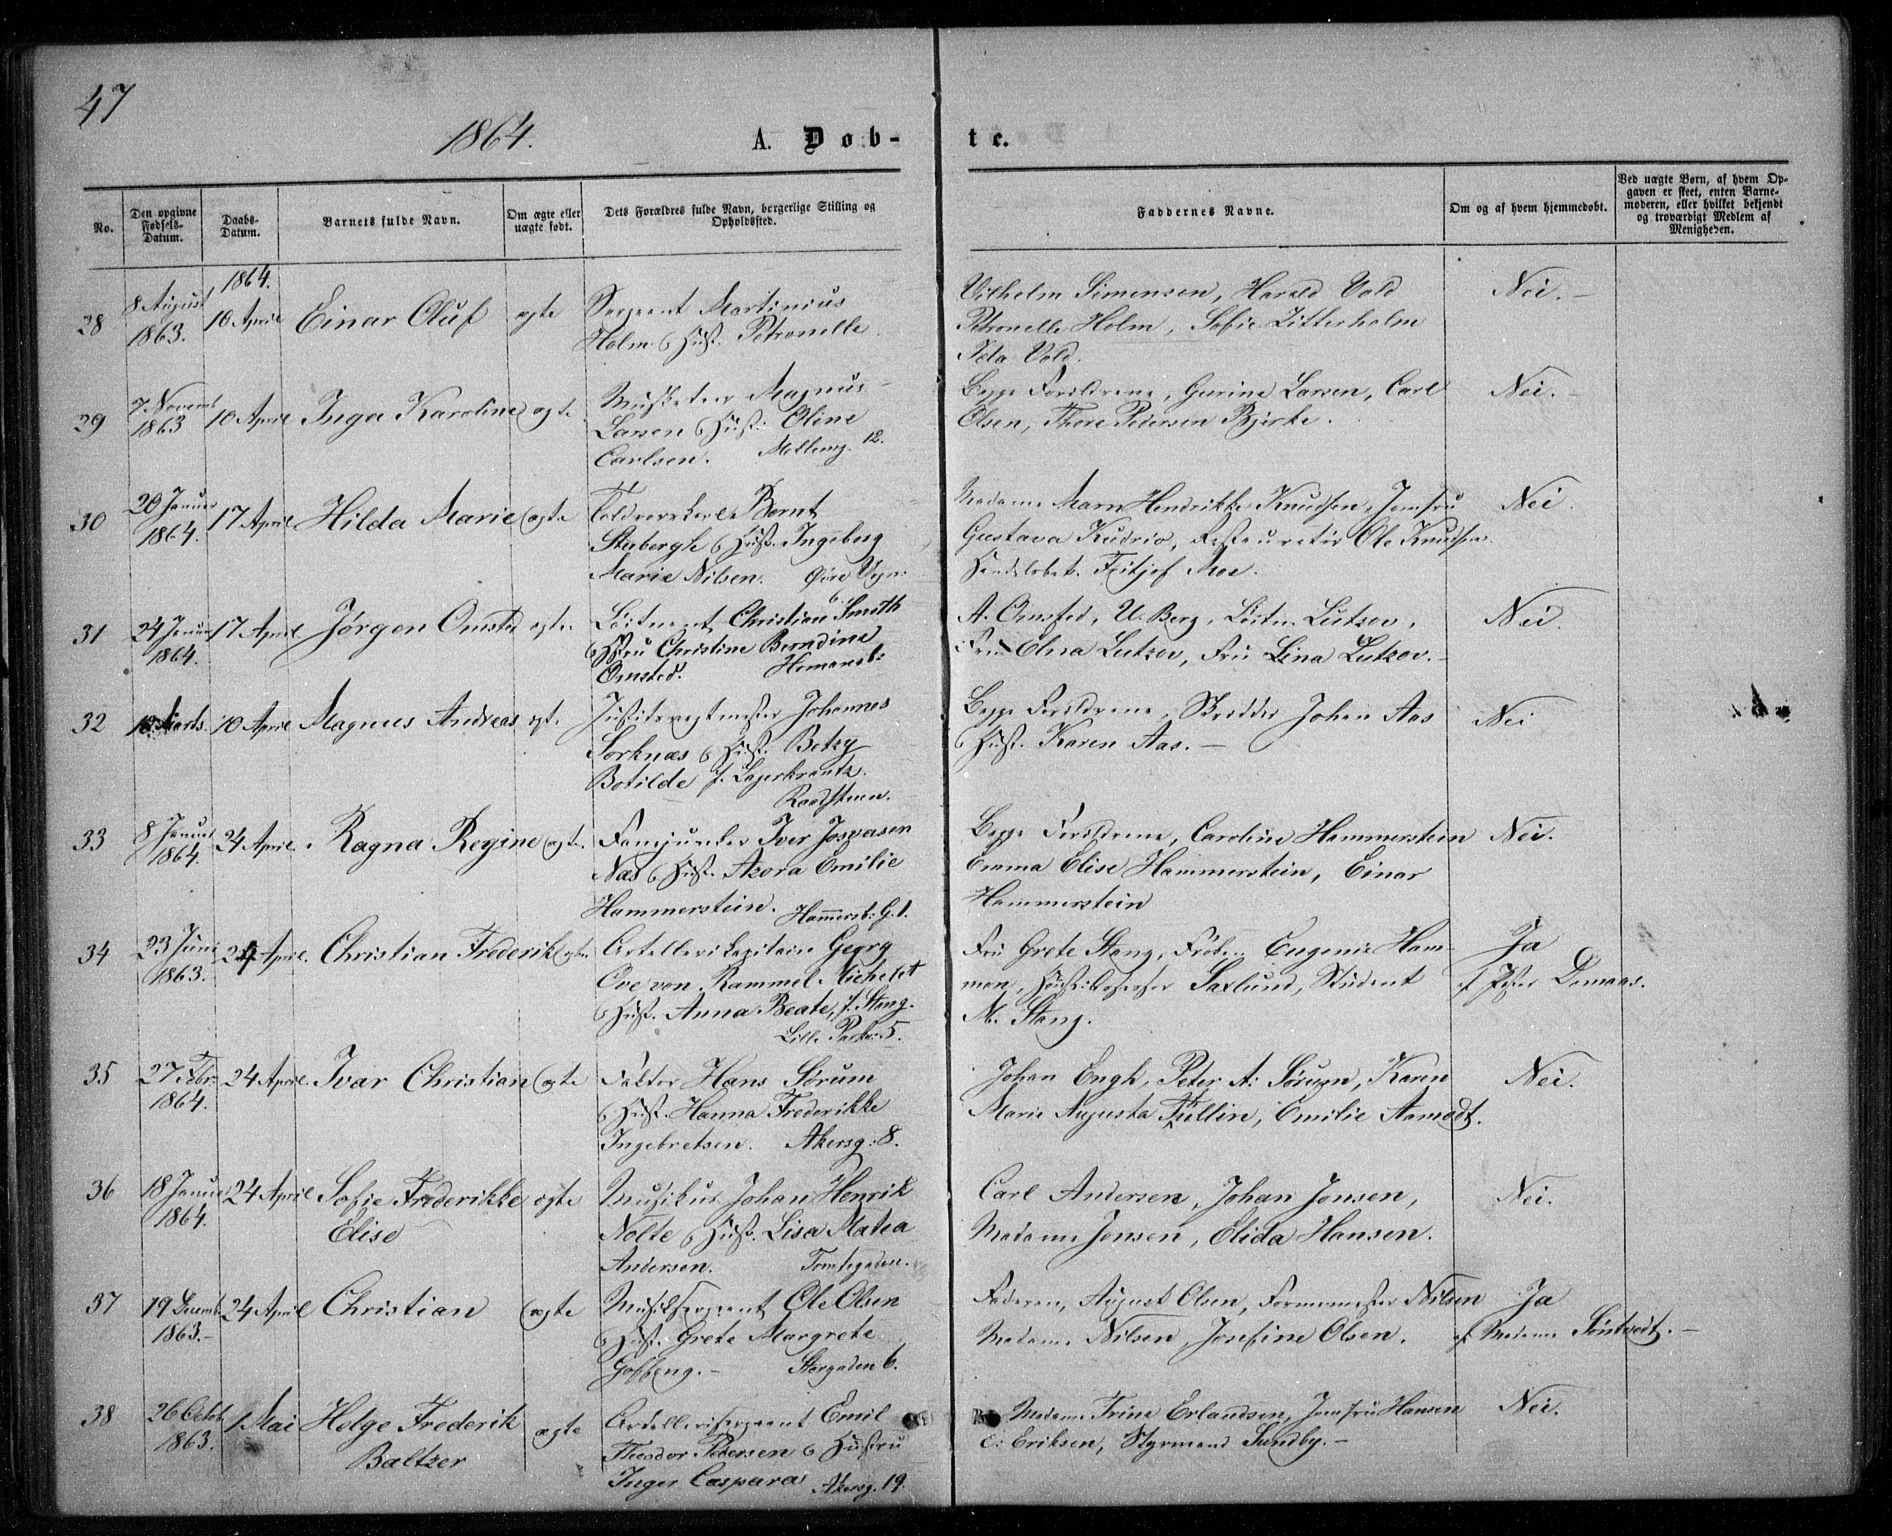 47
1864.
A. Døb-
te.
No.
Den opgivne Fødsels-Datum.
Daabs-Datum.
Barnets fulde Navn.
Om ægte eller uægte født.
Dets Forældres fulde Navn, borgerlige Stilling og Opholdssted.
Faddernes Navne.
Om og af hvem hjemmedøbt.
Ved uægte Børn, af hvem Opgaven er skeet, enten Barnemoderen, eller hvilket bekjendt og troværdigt Medlem af Menigheden.
1864.
28 8 August 1863. 10 April Einar Oluf ægte
Sergeant Martinius
Holm & Hust. Petronelle
Vilhelm Simensen, Harald Vold
Petronelle Holm, Sofie Zitterholm
Ida Vold.
Nei.
29 7 Novemb 1863 10 April Inga Karoline ægte
Musketeer Magnus
Larsen & Hust. Oline
Carlsen. Mølleng. 12.
Begge Forældrene, Gurine Larsen, Carl
Olsen, Thore Pedersen Bjirke.
Nei.
30 20 Januar 1864. 17 April Hilda Marie ægte
Toldrorskarl Bernt
Stubergh & Hust. Ingeborg
Marie Nilsen. Øvre Vogn:
Madame Maren Hendrikke Knudsen, Jomfru
Gustava Kudrio, Restauratør Ole Knudsen
Handelsbet. Fritjof Moe.
Nei.
31 24 Januar 1864. 17 April Jørgen Omsted ægte
Løitnant Christian Smith
& Fru Christine Berndine
Omsted. Homansb:
A. Omsted, U. Berg, Løitn. Lützow,
Fru Elna Lutzow, Fru Lina Lutzow.
Nei.
32 10 Marts. 10 April Magnus Andreas ægt.
Justitsvagtmester Johannes
Sorknæs & Hust. Betzy
Botilde f. Lagerkrantz.
Raadstuen.
Begge Forældrene, Skrædder Johan Aas
& Hust. Karen Aas.
Nei
33 8 Januar 1864. 24 April. Ragna Regine ægte.
Fanejunker Iver Josvasen
Næs & Hust. Azora Emilie
Hammerstein. Hammersb: G. 1.
Begge Forældrene, Caroline Hammerstein
Emma Elise Hammerstein, Einar
Hammerstein
Nei.
34 23 Juni 1863. 24 April. Christian Frederik ægte
Artellerikapitain Georg
Ove von Rammel Michelet
& Hust. Anna Beate, f. Stang.
Lille Parkv. 5.
Fru Grete Stang, Frøken Eugenie Ham-
mon, Saxlund, Student
M. Stang.
Ja
af Demaas.
35 27 Febr. 1864. 24 April. Ivar Christian ægte
Faktor Hans Sørum
& Hust. Hanna Frederikke
Ingebretsen. Akersg: 8.
Johan Engh, Peter A: Sørum, Karen
Marie Augusta Tullin, Emilie Aamodt.
Nei.
36 18 Januar 1864. 24 April Sofie Frederikke ægte
Elise
Musikus Johan Henrik
Nolte & Hust. Lisa Matea
Andersen. Tomtegaden.
Carl Andersen, Johan Jensen,
Madame Jensen, Elida Hansen.
Nei.
37 19 Decemb 1863. 24 April Christian ægte
Musiksergeant Ole Olsen
& Hust. Grete Margrete
Storgaden 6.
Faderen, August Olsen, Formermester Nilsen
Madame Nilsen, Josefine Olsen.
Ja
af Madame Sëntvedt.
38 26 Octob 1863. 1 Mai Helge Frederik ægte
Baltzer
Artellerisergeant Emil
Theodor Pedersen & Hustru
Inger Caspara Akersg. 19.
Madame Trine Erlandsen, Jomfru Hansen
C: Eriksen, Styrmand Sundby.
Nei.